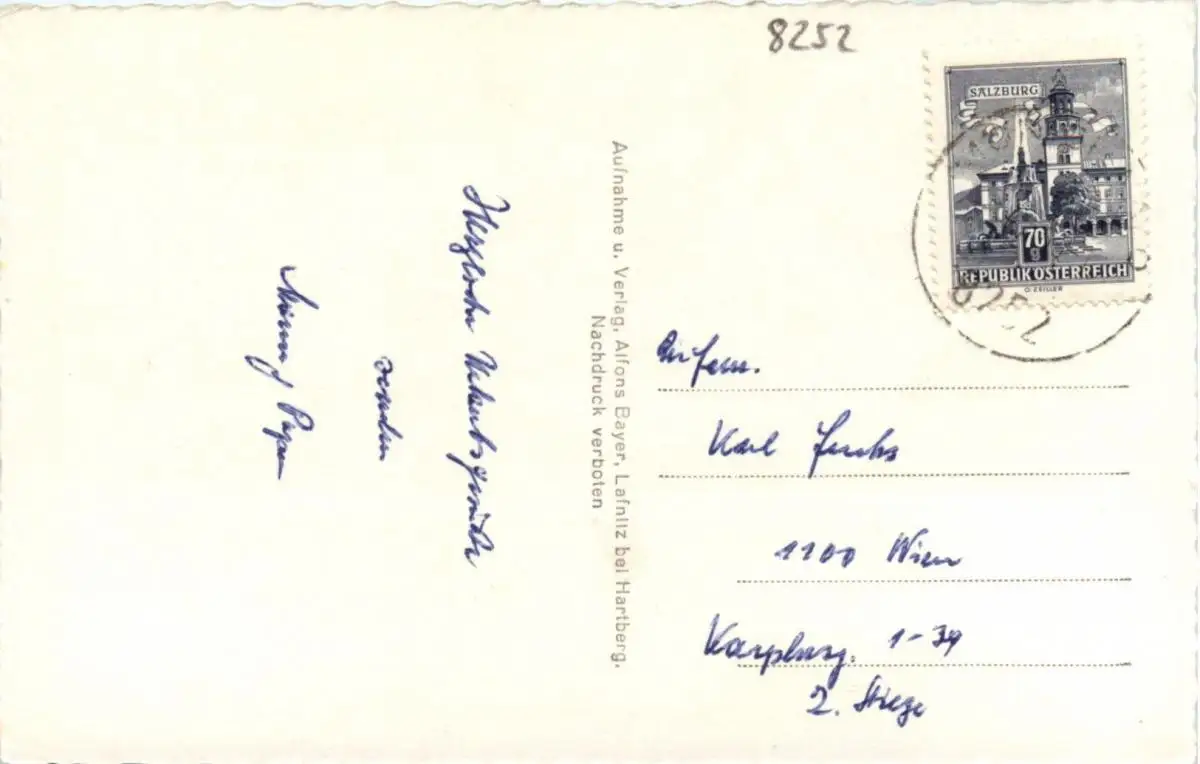 8252
SALZBURG
70
g
REPUBLIK ÖSTERREICH
O. ZEILLER
8252
Aufnahme u. Verlag, Alfons Bayer, Lafnitz bei Hartberg.
Nachdruck verboten
Herzliche Urlaubsgrüße
senden
Mama Papa
Karl Fuchs
1100 Wien
1-39
2. Stiege